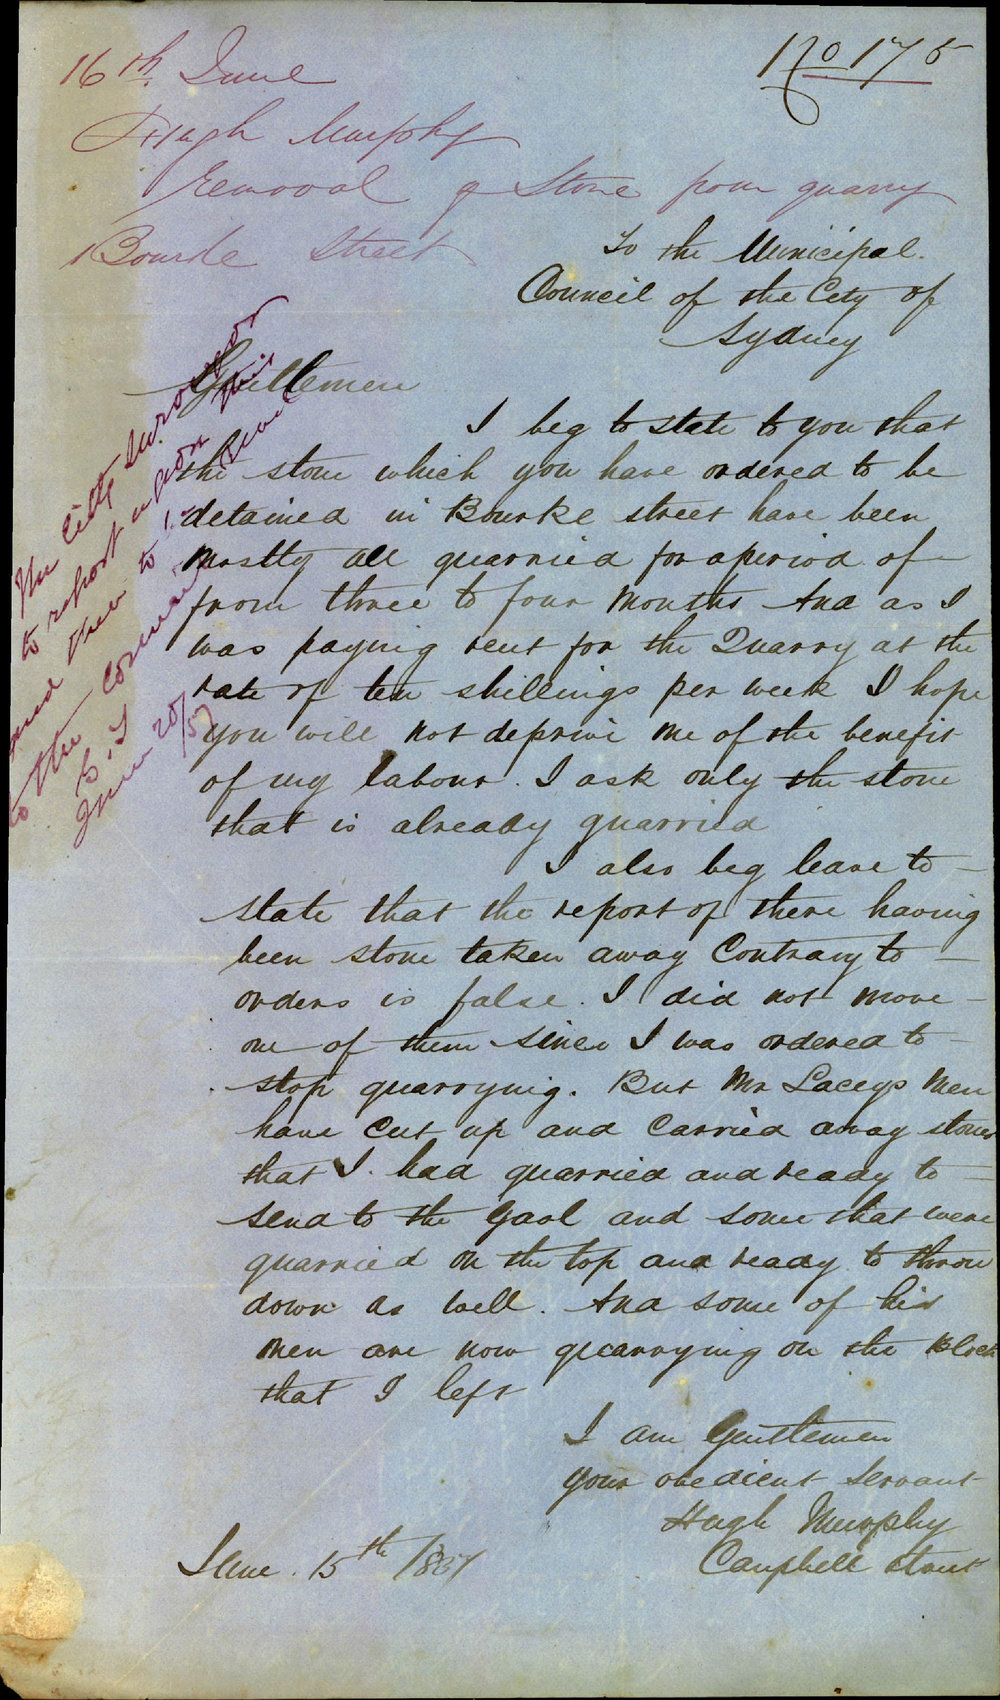 No 175
16th June
Hugh Murphy
Removal of Stone from quarry
Bourke Street
To the Municipal
Council of the City of
Sydney
Gentlemen
I beg to state to you that
the stone which you have ordered to be
detained in Bourke street have been
mostly all quarried for a period of
from three to four months And as I
was paying rent for the Quarry at the
rate of ten shillings per week I hope
you will not deprive me of the benefit
of my labour. I ask only the stone
that is already quarried
I also beg leave to
state that the report of there having
been stone taken away Contrary to
orders is false. I did not move
one of them since I was ordered to
stop quarrying. But Mr Laceys Men
have Cut up and Carried away stones
that I had quarried and ready to
send to the Gaol and some that were
quarried on the top and ready to throw
down as well. And some of his
men are now quarrying on the Block
that I left
I am Gentlemen
your obedient Servant
Hugh Murphy
Campbell street
June 15th/1857
The City Surveyor
to report upon this
and then to be Read
to the Commee
June 20/57